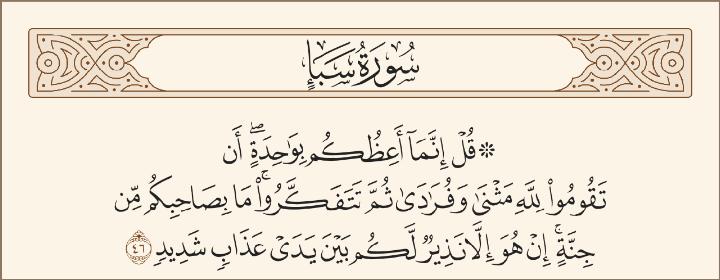 سُورَةُ سَبَإٍ
۞ قُلْ إِنَّمَآ أَعِظُكُم بِوَٰحِدَةٍۖ أَن
تَقُومُوا۟ لِلَّهِ مَثْنَىٰ وَفُرَٰدَىٰ ثُمَّ تَتَفَكَّرُوا۟ۚ مَا بِصَاحِبِكُم مِّن
جِنَّةٍۚ إِنْ هُوَ إِلَّا نَذِيرٌ لَّكُم بَيْنَ يَدَىْ عَذَابٍ شَدِيدٍ ٤٦